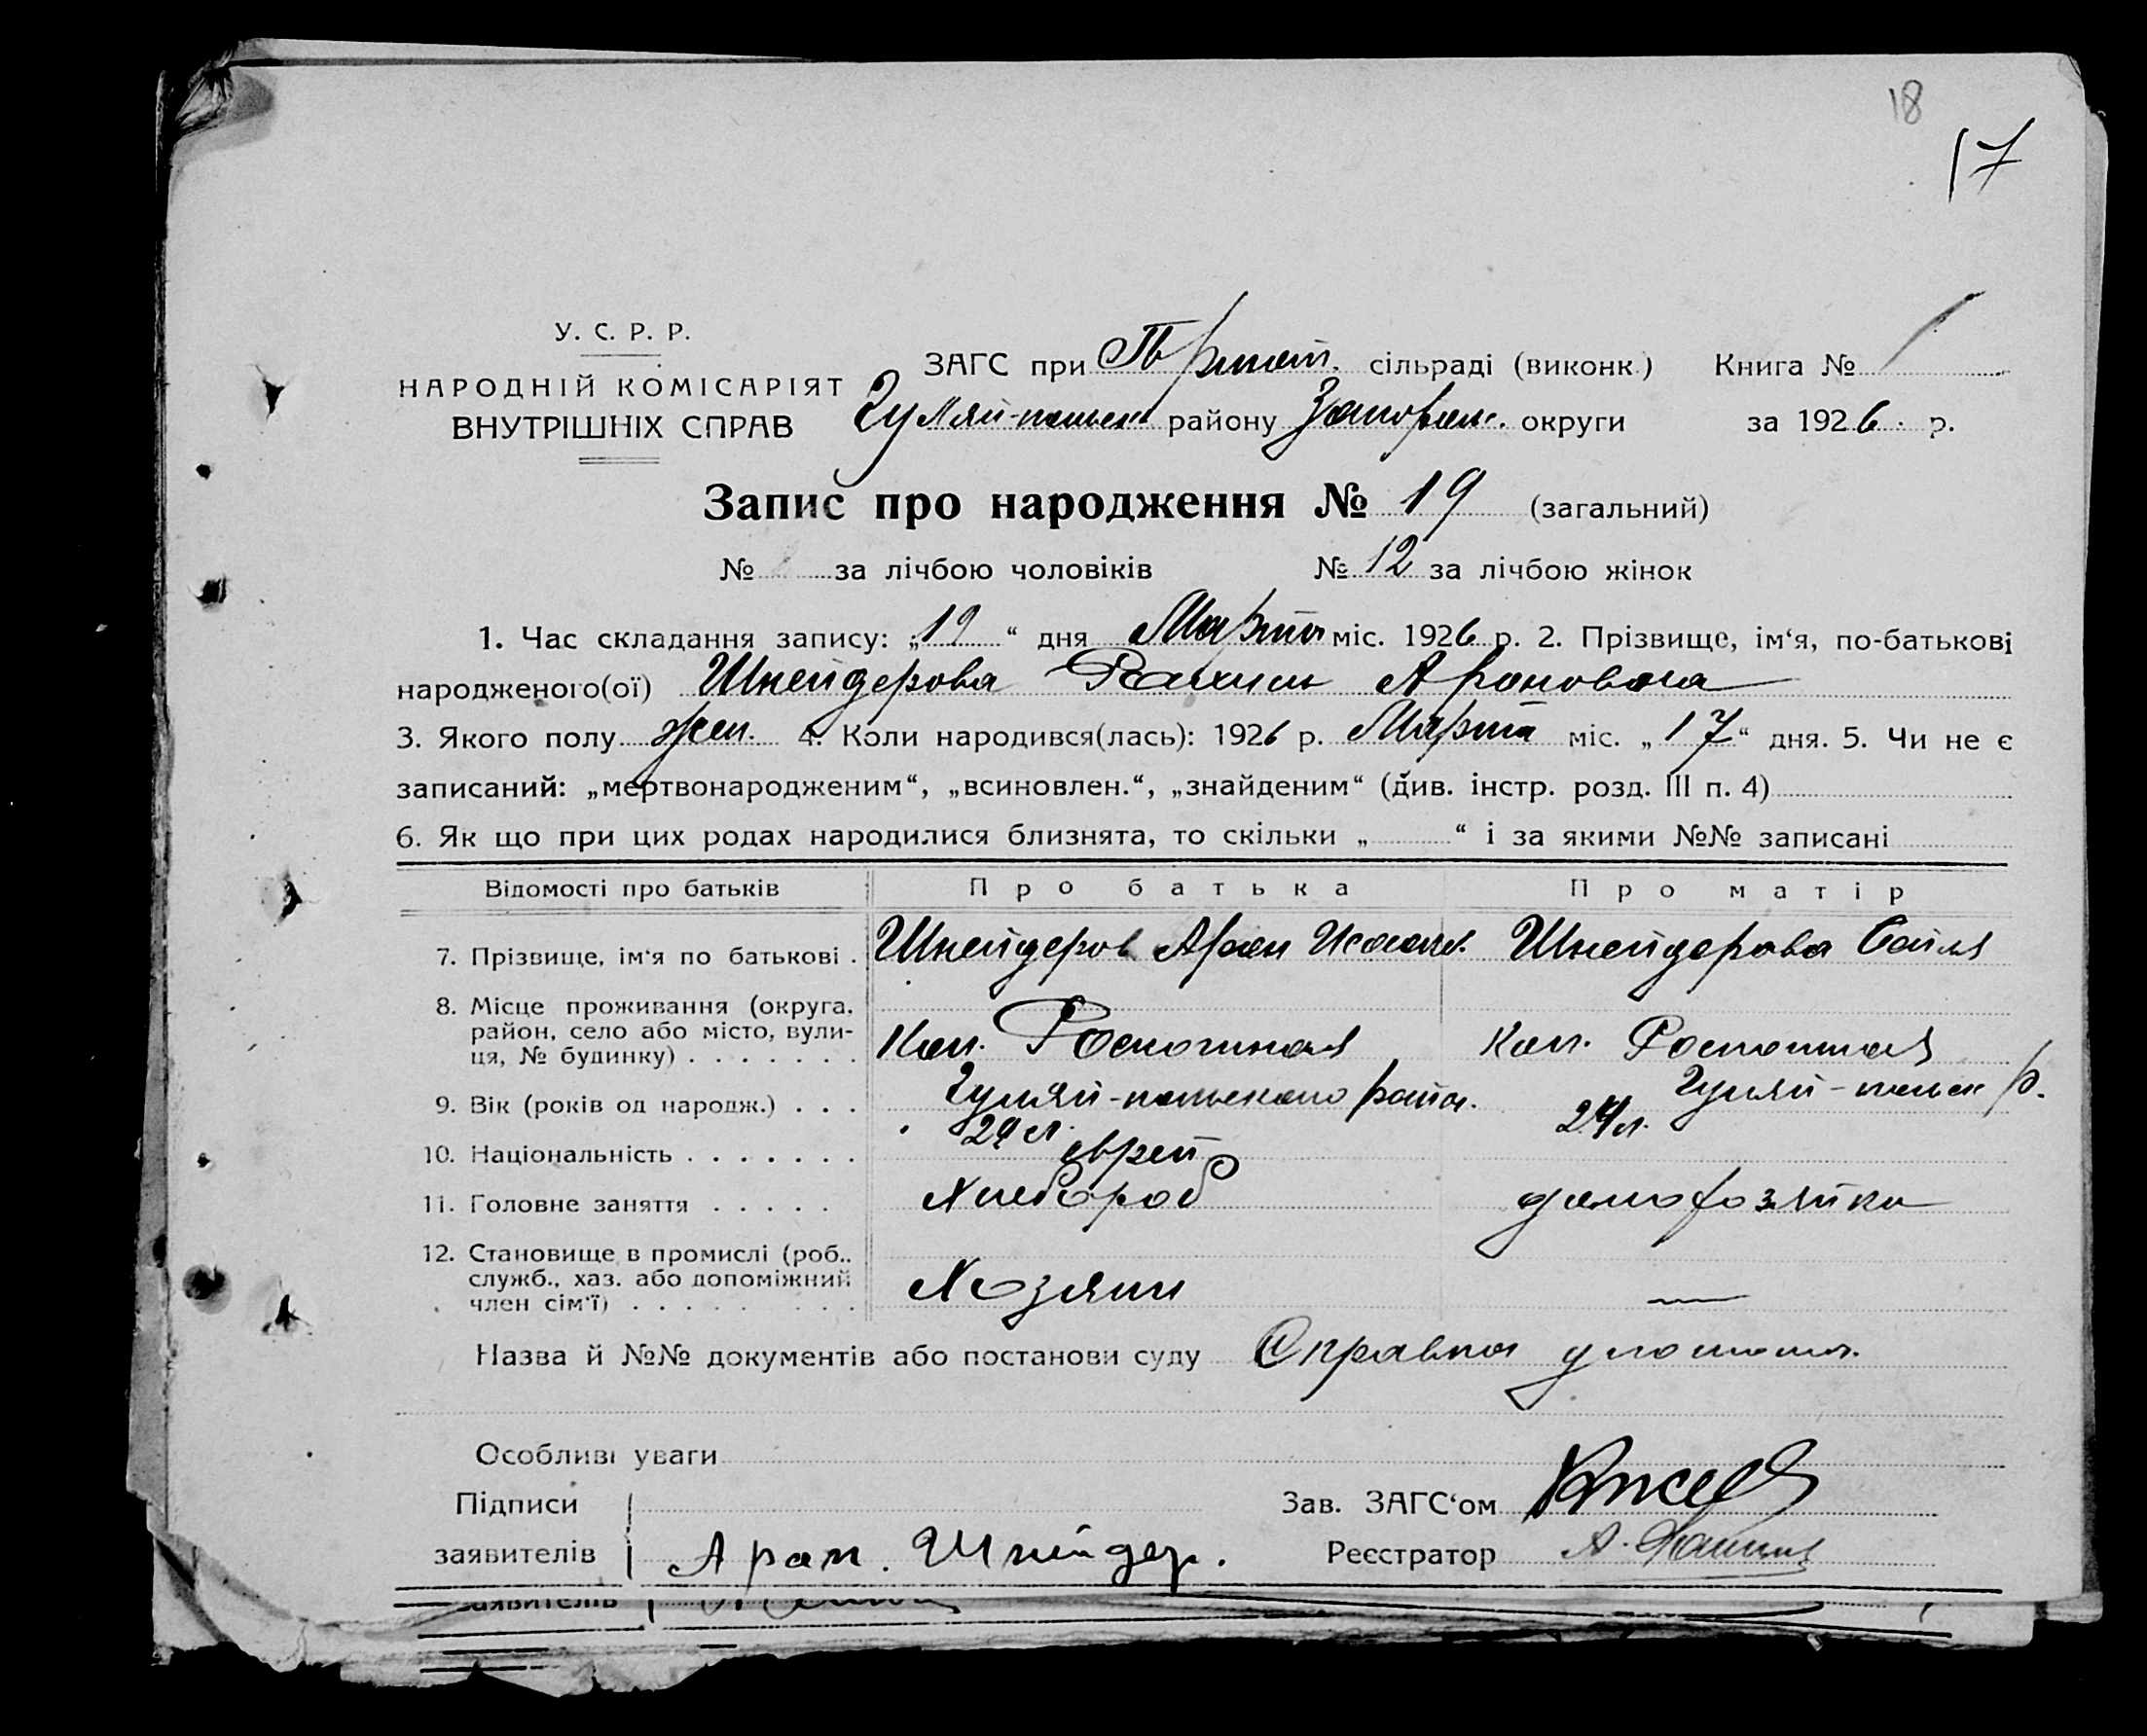 18
17
У. С. Р. Р.
НАРОДНІЙ КОМІСАРІЯТ
ВНУТРІШНІХ СПРАВ
ЗАГС при сільраді (виконк.) Книга № 1
Гуляй-польск району Запорож. округи за 1926 р.
Запис про народження № 19 (загальний)
№ за лічбою чоловіків № 12 за лічбою жінок
1. Час складання запису: „19“ дня Марта міс. 1926 р. 2. Прізвище, ім‘я, по-батькові
народженого(ої) Шнейдерова Рахиль Ароновна
3. Якого полу жен. 4. Коли народився(лась): 1926 р. Марта міс. „17“ дня. 5. Чи не є
записаний: „мертвонародженим“, „всиновлен.“, „знайденим“ (див. інстр. розд. III п. 4)
6. Як що при цих родах народилися близнята, то скільки „ “ і за якими №№ записані
Відомості про батьків Про батька Про матір
7. Прізвище, ім‘я по батькові . Шнейдеров Арон Шнейдерова
8. Місце проживання (округа,
район, село або місто, вули-
ця, № будинку) . . . . . . . Кол. Роскошная Кол. Роскошная
Гуляй-польского район. Гуляй-польск р.
9. Вік (років од народж.) . . . 29 л. 24 л.
10. Національність . . . . . . . еврей
11. Головне заняття . . . . . Хлебороб домохозяйка
12. Становище в промислі (роб.,
служб., хаз. або допоміжний
член сім‘ї) . . . . . . . . Хозяин —
Назва й №№ документів або постанови суду Справка
Особливі уваги
Підписи Зав. ЗАГС‘ом
заявителів Арон. Шнейдер. Реєстратор А.
заявителів